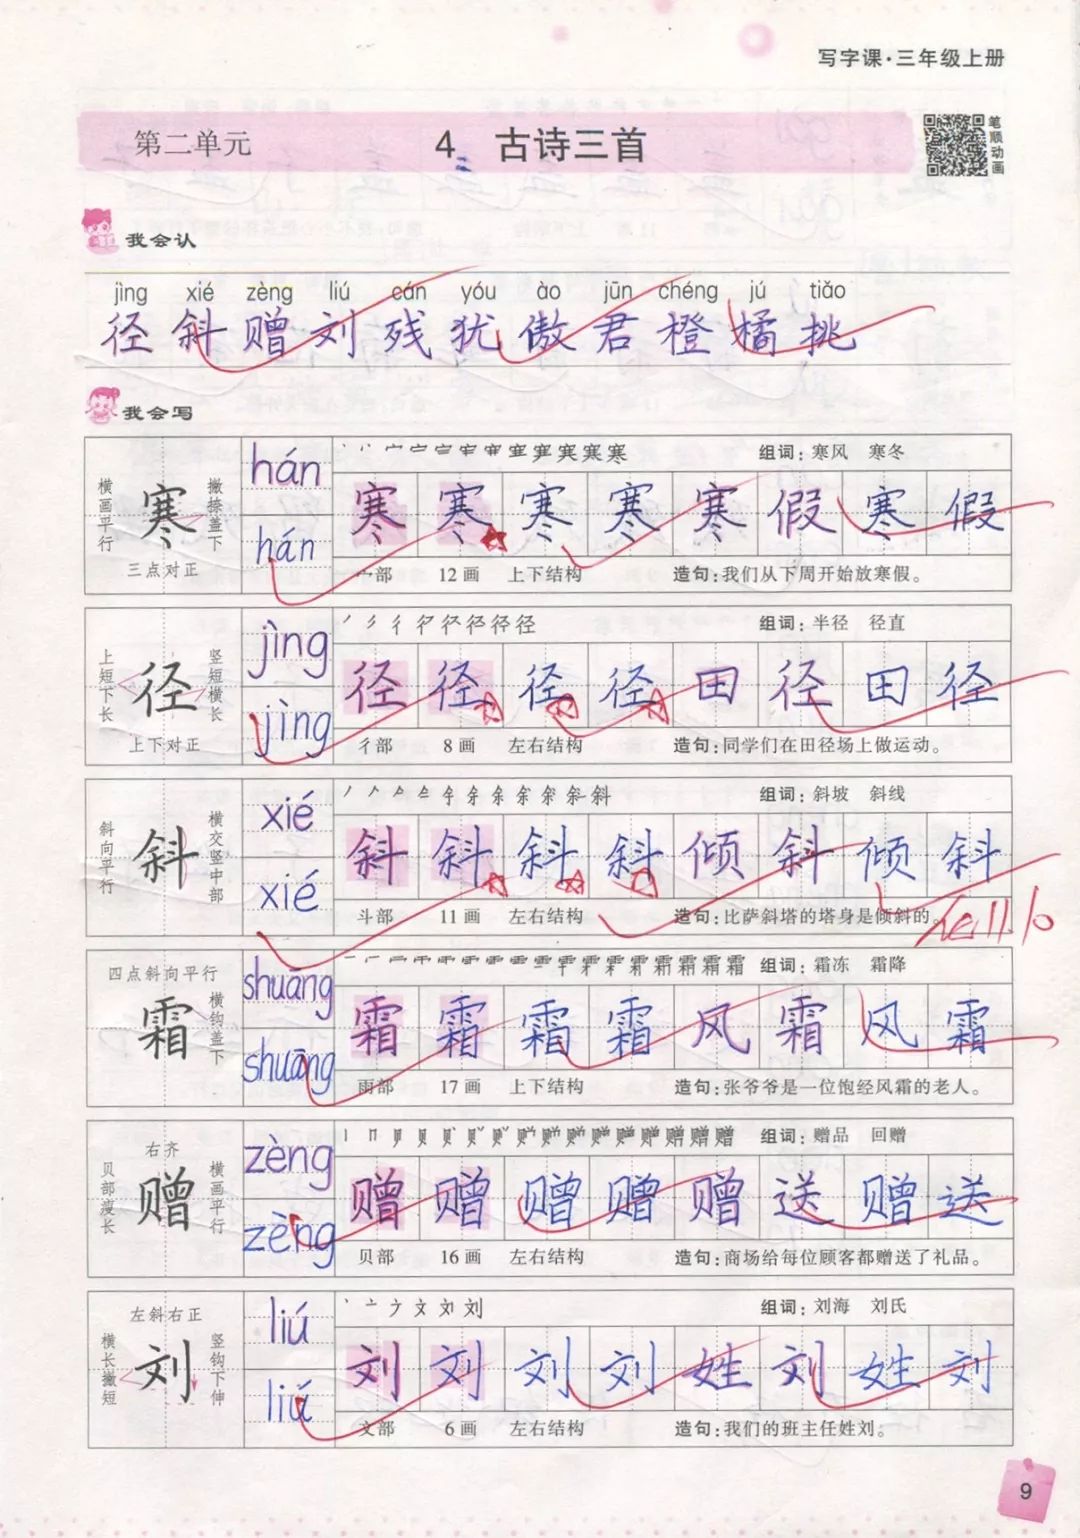 写字课·三年级上册
第二单元 4 古诗三首
笔顺动画
我会认
jìng xié zèng liú cán yóu ào jūn chéng jú tiāo
径 斜 赠 刘 残 犹 傲 君 橙 橘 挑
我会写
横画平行 寒 撇捺盖下
三点对正
hán
hán
组词:寒风 寒冬
寒 寒 寒 寒 寒 假 寒 假
宀部 12画 上下结构 造句:我们从下周开始放寒假。
上短下长 径 竖短横长
上下对正
jìng
jìng
组词:半径 径直
径 径 径 径 田 径 田 径
彳部 8画 左右结构 造句:同学们在田径场上做运动。
斜向平行 斜 横交竖中部
xié
xié
组词:斜坡 斜线
斜 斜 斜 斜 倾 斜 倾 斜
斗部 11画 左右结构 造句:比萨斜塔的塔身是倾斜的。
11.10
四点斜向平行
霜 横钩盖下
shuāng
shuāng
组词:霜冻 霜降
霜 霜 霜 霜 风 霜 风 霜
雨部 17画 上下结构 造句:张爷爷是一位饱经风霜的老人。
右齐
贝部瘦长 赠 横画平行
zèng
zèng
组词:赠品 回赠
赠 赠 赠 赠 赠 送 赠 送
贝部 16画 左右结构 造句:商场给每位顾客都赠送了礼品。
左斜右正
横长撇短 刘 竖钩下伸
liú
liú
组词:刘海 刘氏
刘 刘 刘 刘 姓 刘 姓 刘
文部 6画 左右结构 造句:我们的班主任姓刘。
9